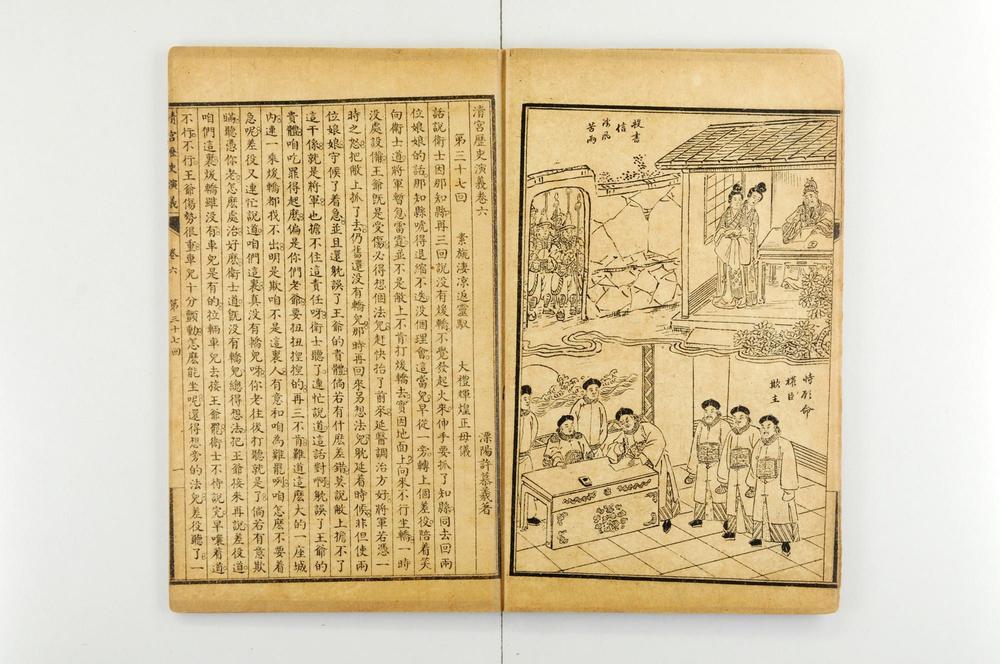 投書
苦雨
權臣
欺主
清宮歷史演義卷六
溧陽許慕羲著
第三十七回 素旐淒凉返靈馭 大禮輝煌正母儀
話說衛士因那知縣再三回說没有煖轎不覺發起火來伸手要抓了知縣同去回兩
位娘娘的話那知縣唬得退縮不迭没個理會這當兒早從一旁轉上個差役陪着笑
向衛士道將軍暫息雷霆並不是敝上不肯打煖轎去實因地面上向來不行坐轎一時
没處設備王爺旣是受傷必得想個法兒赶快抬了前來延醫調治方好將軍若憑一
時之怒把敝上抓了去仍舊還没有轎兒那時再回來另想法兒躭延着時候非但使兩
位娘娘守候了着急並且還躭誤了王爺的貴體倘若有什麼差錯莫說敝上擔不了
這干係就是將軍也擔不住這責任呀衛士聽了連忙說道這話對啊躭誤了王爺的
貴體咱吃罪得起麼偏是你們老爺要扭扭揑揑的再三不肯難道這麼大的一座城
内連一乘煖轎都找不出明是欺咱不是這裏人有意和咱爲難罷咧咱怎麼不要着
急呢差役又連忙說道咱們這裏真没有轎兒呀你老往後打聽就是了倘若有意欺
瞞聽憑你老怎麼處治好麼衛士道旣没有轎兒總得想法把王爺接來再說差役道
咱們這裏煖轎雖没有車兒是有的拉輛車兒去接王爺罷衛士不待說完早嚷着道
不行不行王爺傷勢很重車兒十分顫動怎麼能坐呢還得想旁的法兒差役聽了一
清宮歷史演義 卷六 第三十七回 一